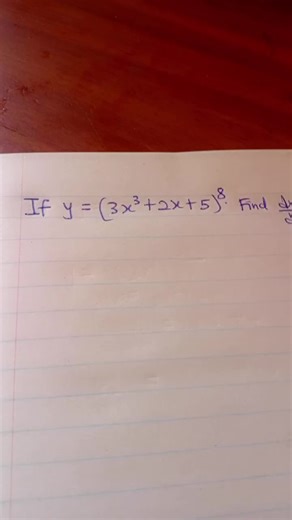 If y = (3x³+2x+5)⁸. Find